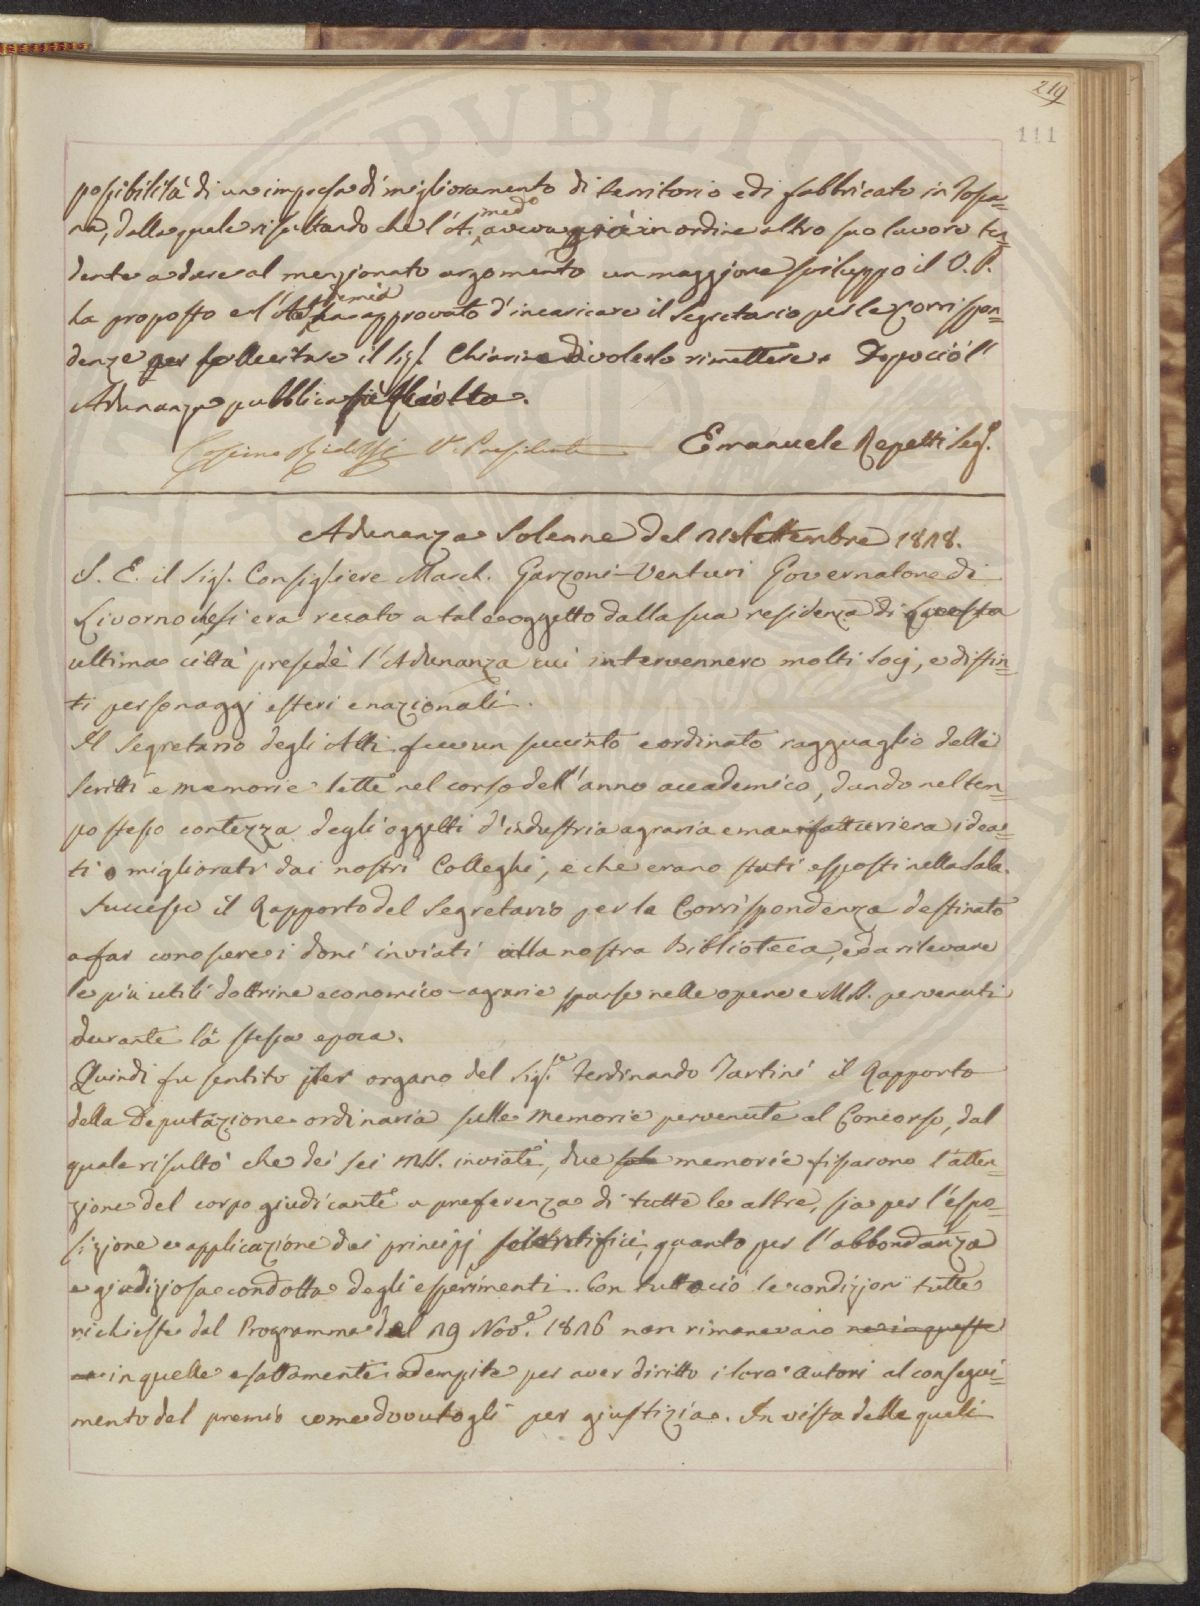 219
111
possibilità di un'impresa di miglioramento di territorio e di fabbricato in Tosca=
na, dalla quale risultando che l'A. med.o aveva già in ordine altro suo lavoro ten=
dente a dare al menzionato argomento un maggiore sviluppo il V. P.
ha proposto e l'Accademia approvato d'incaricare il Segretario per le Corrispon=
denze per sollecitare il Sig. Chiarini di volerlo rimettere. Dopo ciò l'
Adunanza pubblica fù sciolta.
Cosimo Ridolfi V. Presidente Emanuele Repetti Seg.o
Adunanza Solenne del 21 Settembre 1818.
S. E. il Sig. Consigliere March. Garzoni-Venturi Governatore di
Livorno che si era recato a tale oggetto dalla sua residenza di questa
ultima città presedè l'Adunanza cui intervennero molti Socj, e distin=
ti personaggi esteri e nazionali.
Il Segretario degli Atti fece un succinto e ordinato ragguaglio delli
scritti e memorie lette nel corso dell'anno accademico, dando nel tem=
po stesso contezza degli oggetti d'industria agraria e manifatturiera idea=
ti o migliorati dai nostri Colleghi, e che erano stati esposti nella Sala.
Successe il Rapporto del Segretario per la Corrispondenza destinato
a far conoscere i doni inviati alla nostra Biblioteca, ed a rilevare
le più utili dottrine economico-agrarie sparse nelle opere e MS. pervenuti
durante la stessa epoca.
Quindi fu sentito per organo del Sig.re Ferdinando Tartini il Rapporto
della Deputazione ordinaria sulle Memorie pervenute al Concorso, dal
quale risultò che dei sei MS. inviati, due sole memorie fissarono l'atten=
zione del corpo giudicante a preferenza di tutte le altre, sia per l'espo=
sizione e applicazione dei principj scientifici, quanto per l'abbondanza
e giudiziosa condotta degli esperimenti. Con tutto ciò le condizioni tutte
richieste dal Programma del 19 Nov.e 1816 non rimanevano
in quelle esattamente adempite per aver diritto i loro autori al consegui=
mento del premio come dovutogli per giustizia. In vista delle quali